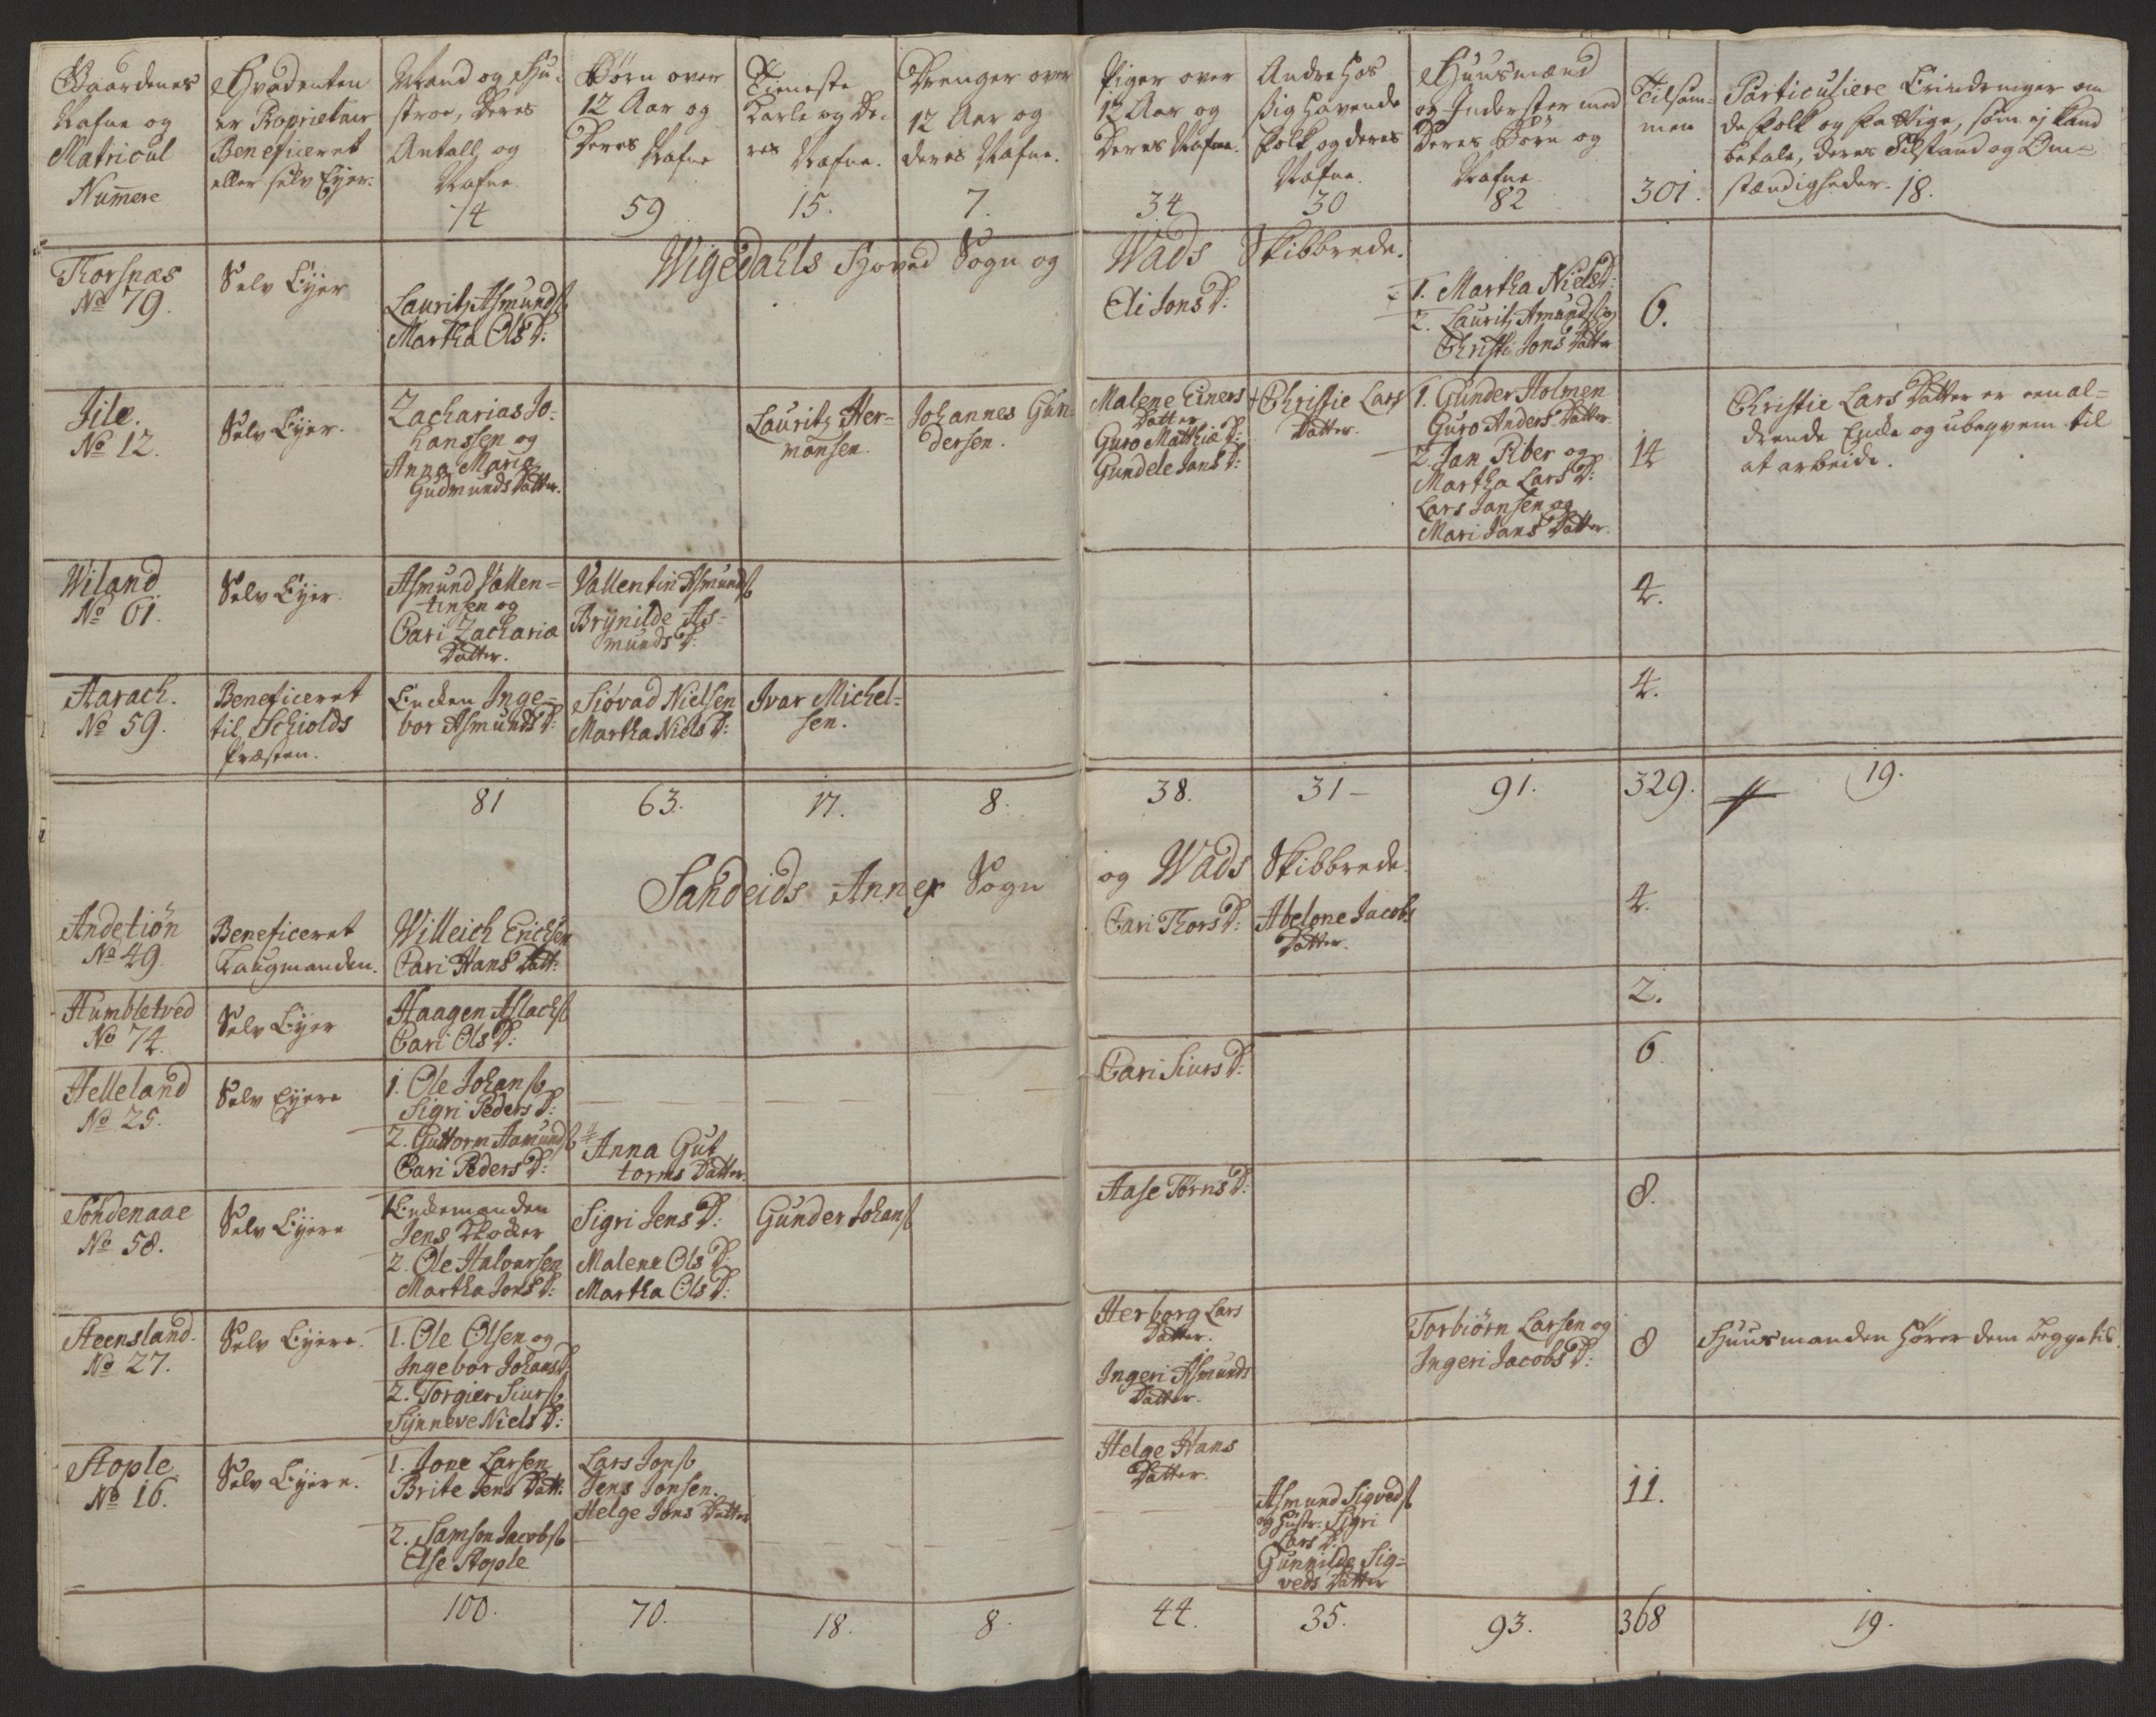 Gaardenes
Nafne og
Matricul
Numere
Hvadenten
er Proprietair
Beneficeret
eller selv Eyer.
Mand og Hu-
stroe, deres
Antall og
Nafne.
74
Børn over
12 Aar og
Deres
Nafne
59
Tieneste
Karle og De-
res
Nafne.
15.
Drenger over
12 Aar og
deres Nafne.
7.
Piger over
12 Aar og
Deres Nafne.
34
Andre hos
sig havende
folk og deres
Nafne.
30
Huusmænd
og Inderster med
Deres Børn og
Nafne.
82
Tilsam-
men
301.
Particuliere Erindringer om
de folk og fattige, som ej kand
betale, deres Tilstand og Om-
stændigheder. 18.
Wigedahls Hoved Sogn og Wads Skibbrede.
Thorsnæs
No 79.
Selv Eyer
Lauritz Asmunds
Martha Ols D:
Eli Jons D:
1. Martha Niels D:
2. Lauritz Amunds og
Christi Jons Datter
6.
Jile.
No 12.
Selv Eyer.
Zacharias Jo-
hanssen og
Anna Maria
Gudmunds Datter.
Lauritz Her-
mansen.
Johannes Gun-
dersen.
Malene Einers
Datter
Guro Matthiæ D:
Gundele Jans D:
+ Christie Lars
Datter.
1. Gunder Holmen
Guro Anders Datter
2. Jan Piber og
Martha Lars D:
Lars Jansen og
Mari Jans Datter.
14
Christie Lars Datter er en al-
drende Encke og ubeqvem til
at arbeide.
Wiland
No 61.
Selv Eyer.
Asmund Vallen-
tinsen og
Cari Zachariæ
Datter.
Vallentin Asmunds
Brynilde As-
munds D:
4.
Aarach.
No 59.
Beneficeret
til Schiolds
Præsten.
Encken Inge-
bor Asmunds D:
Siøvad Nielsen
Martha Niels D:
Ivar Michel-
sen.
4.
81
63.
17.
8.
38.
31-
91.
329.
19.
Sandeids Annex Sogn og Wads Skibbrede.
Andetiøn
No 49.
Beneficeret
Laugmanden.
Willeich Erichsen
Cari Hans Datt:
Cari Thors D:
Abelone Jacobs
Datter.
4.
Humbletved
No 74.
Selv Eyer
Haagen Aslachs
Cari Ols D:
2.
Helleland
No 25.
Selv Eyere
1. Ole Johans
Sigri Peders D:
2. Guttorm Aamunds
Cari Peders D:
Anna Gut
torms Datter.
Cari Siurs D:
6
Søndenaae
No 58.
Selv Eyere
1 Enckemanden
Jens
2. Ole Halvorsen
Martha Jons D:
Sigri Jens D:
Malene Ols D:
Martha Ols D:
Gunder Johans
Aase Tørns D:
8.
Steensland.
No 27.
Selv Eyere.
1. Ole Olsen og
Ingebor Johans D:
2. Torgier Siurs
Synneve Niels D:
Herborg Lars
Datter.
Ingeri Asmunds
Datter.
Torbiørn Larsen og
Ingeri Jacobs D:
8
Huusmanden hører dem begge til.
Stople
No 16.
Selv Eyere.
1. Jone Larsen
Brite Jens Datt:
2. Samson Jacobs
Else Stople
Lars Jons
Jens Jonsen.
Helge Jons Datter
Helge Hans
Datter.
Asmund Sigveds
og Hustr: Sigri
Lars D:
Gunnilde Sig-
veds Datter
11.
100.
70.
18.
8.
44.
35.
93.
368
19.